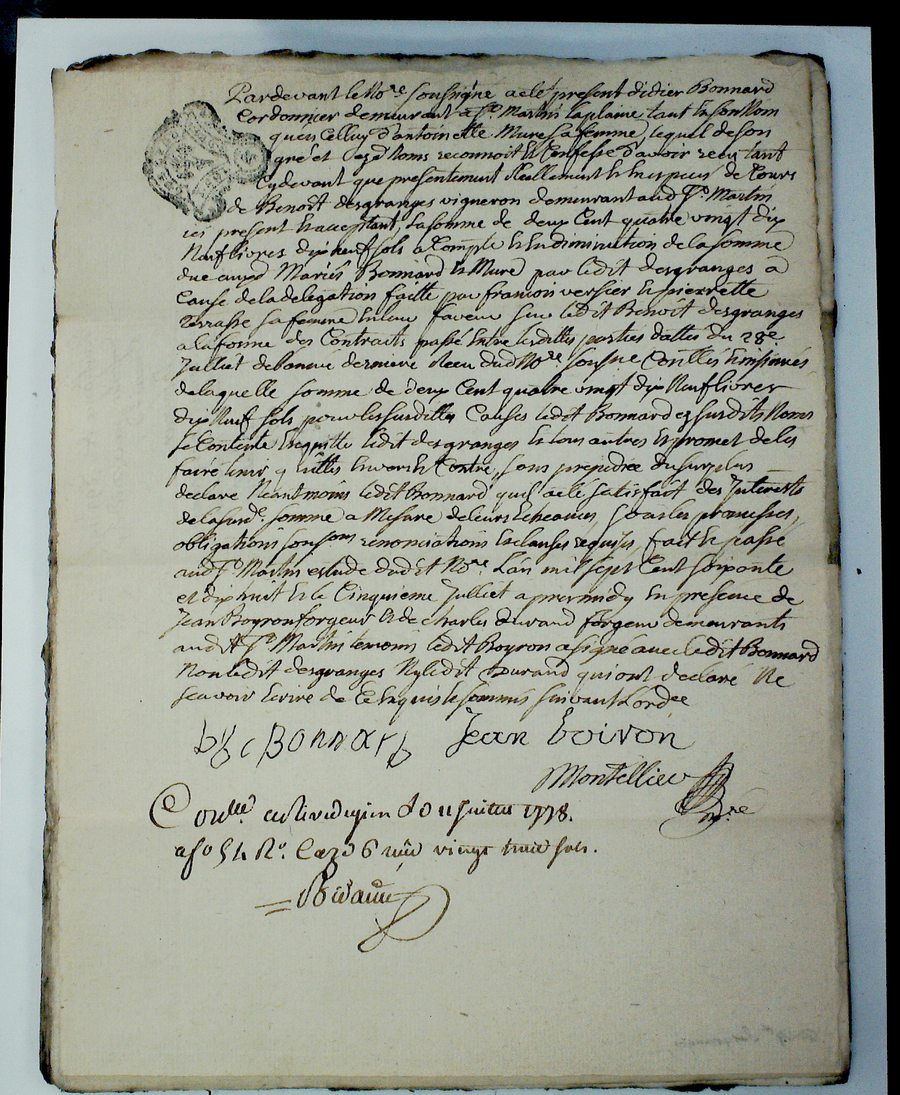 Pardevant le No.re soussigné a été present didier Bonnard
Cordonnier demeurant a St. Martin Laplaine tant En son Nom
qu'en Celluy d'antoinette Mure sa femme, lequel de son
gré et Esd. Noms reconnoit Et Confesse d'avoir recu tant
Cydevant que presentement Reallement En Especes de Cours
de Benoit desgranges vigneron demeurant aud. St. Martin
ici present Et acceptant, la somme de deux Cent quatre vingt dix
Neuf livres dix neuf sols a Compte Et En diminution de la somme
due auxd. Mariés Bonnard Et Mure par ledit desgranges a
Cause de la delegation faitte par francois versier Et pierrette
terrasse sa femme En leur faveur sur ledit Benoit desgranges
a la forme des Contrats passé Entre lesdittes parties dattes du 28e.
Juillet de l'année derniere Recu dud. No.re soussné Conllés Et insinués
de laquelle somme de deux Cent quatre vingt dix Neuf livres
dix Neuf sols pour les susdittes Causes ledit Bonnard Es susdits Noms
se Contente Et quitte ledit desgranges Et tous autres Et promet de les
faire tenir quittes Envers Et Contre, sous prejudice du surplus
declare Neantmoins ledit Bonnard qu'il a été satisfait des Interets
de la susd. somme a Mesure de leurs Echeances, sous les promesses,
obligations soumons renonciations Et clauses requises, fait Et passé
aud. St. Martin Estude dudit No.re L'an mil sept Cent soixante
et dix huit Et le Cinquieme Juillet apres midy En presence de
Jean Boyron forgeur Et de Charles durand forgeur demeurants
audit St. Martin temoins ledit Boyron a signé avec ledit Bonnard
Non ledit desgranges Ny ledit Durand qui ont declaré Ne
scavoir Ecrire de Ce Enquis Et sommés suivant L'ordce
Bonnard Jean boiron
Montellier
No.re
Conllé a le 11 juillet 1778.
a fo 54 No. Caze 6 vingt huit sols.